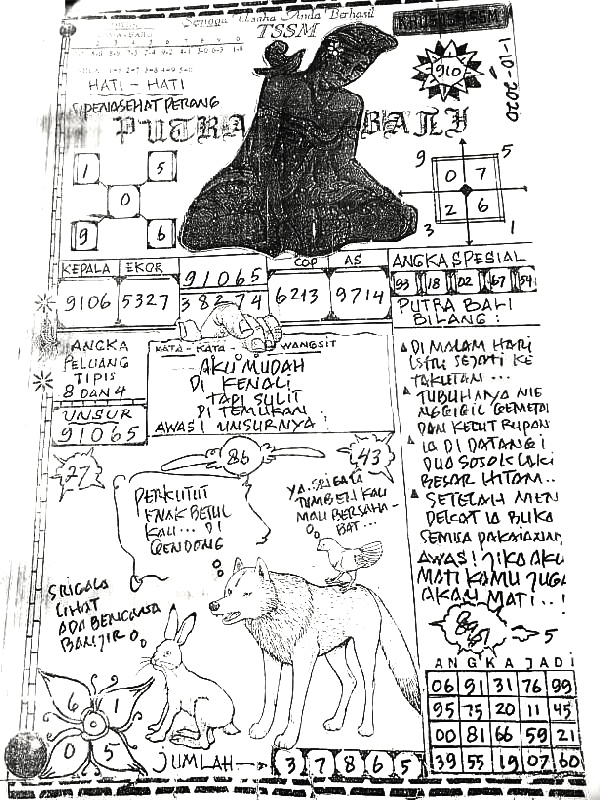 Semoga Usaha Anda Berhasil
TSSM
910
1-10-2020
HATI - HATI
PENASEHAT PERANG
PUTRA BALI
1 5
0
9 6
9 5
0 7
2 6
3 1
KEPALA EKOR
9106 5327
91065
38274
COP AS
6213 9714
ANGKA SPESIAL
93 18 02 67 54
PUTRA BALI
BILANG :
ANGKA
PELUANG
TIPIS
8 DAN 4
UNSUR
91065
KATA - KATA WANGSIT
AKU MUDAH
DI KENALI
TAPI SULIT
DI TEMUKAN
AWAS! UNSURNYA
DI MALAM HARI
ISTRI SEJATI KE
TAKUTAN ...
TUBUHNYA ME
NGGIGIL GEMETAR
DAN KETUT RUPAN
IA DI DATANGI
DUA SOSOK LAKI
BESAR HITAM..
SETELAH MEN
DEKAT IA BUKA
SEMUA PAKAIANNYA
AWAS! JIKA AKU
MATI KAMU JUGA
AKAN MATI...!
77
86
43
PERKUTUT
ENAK BETUL
KAU ... DI
GENDONG
YA.. SRIGALA
TUMBEN KAU
MAU BERSAHA-
BAT ...
SRIGALA
LIHAT
ADA BENCANA
BANJIR
5
6 1
0 5
JUMLAH 3 7 8 6 5
ANGKA JADI
06 91 31 76 99
95 75 20 11 45
00 81 66 59 21
39 55 19 07 60